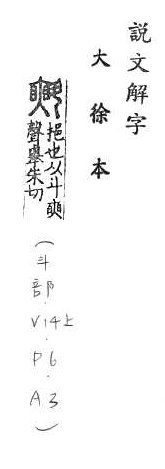 説文解字
大徐本
挹也从斗
聲舉朱切
(斗部.V14上.P6.A3)